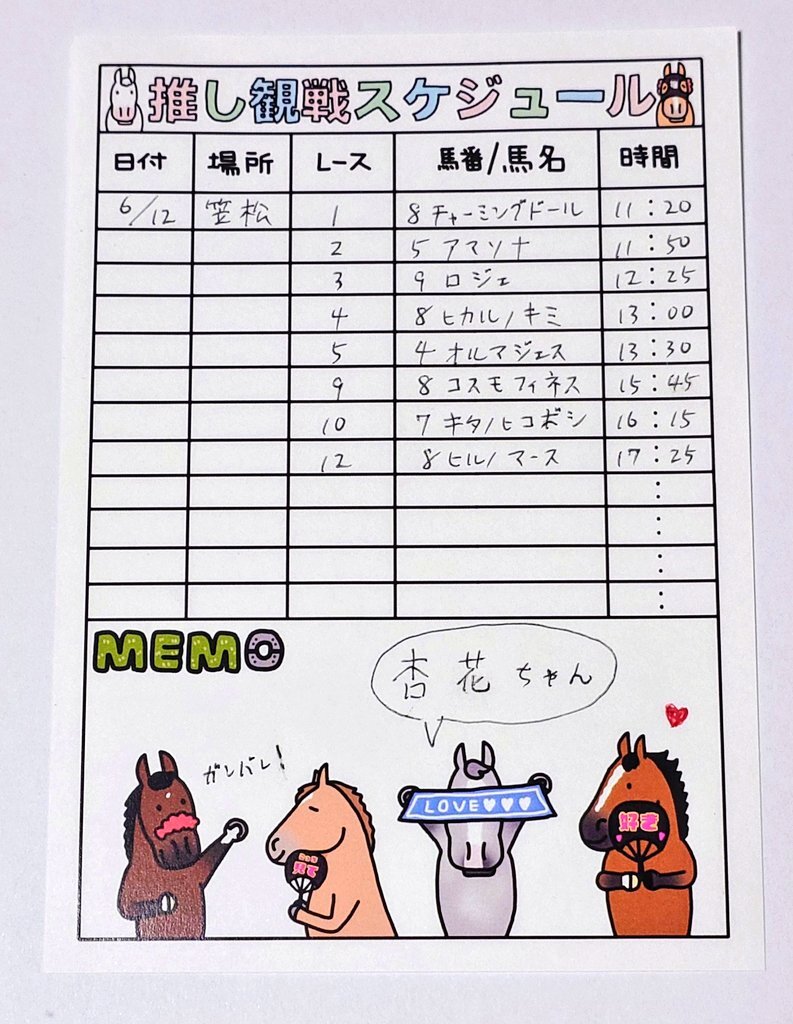 推し観戦スケジュール
日付 場所 レース 馬番/馬名 時間
6/12 笠松 1 8 チャーミングドール 11:20
2 5 アマソナ 11:50
3 9 ロジェ 12:25
4 8 ヒカルノキミ 13:00
5 4 オルマジェス 13:30
9 8 コスモフィネス 15:45
10 7 キタノヒコボシ 16:15
12 8 ヒルノマース 17:25
:
:
:
:
MEMO
杏花ちゃん
ガンバレ!
LOVE♥♥♥
好き
見て